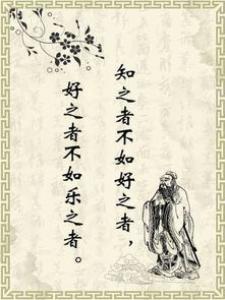 知之者不如好之者，
好之者不如乐之者。